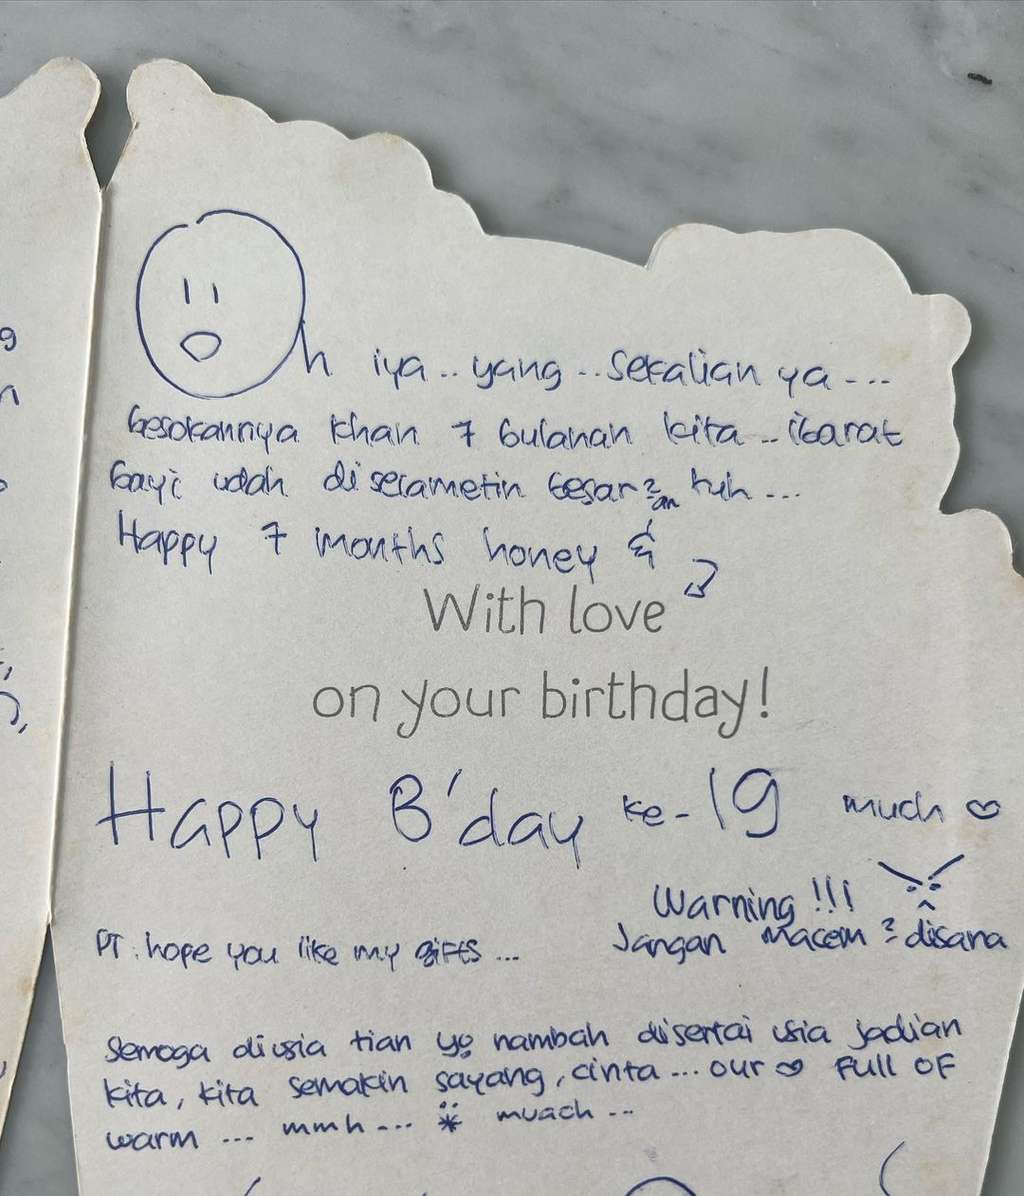 Oh iya.. yang.. sekalian ya...
besokannya khan 7 bulanan kita.. ibarat
bayi udah diselametin besar2an tuh...
Happy 7 months honey &
With love
on your birthday!
Happy B'day ke-19 much ♡
Warning !!!
Jangan macem2 disana
PT: hope you like my gifts...
Semoga diusia tian yg nambah disertai usia jadian
kita, kita semakin sayang, cinta... our ♡ full of
warm... mmh... muach...